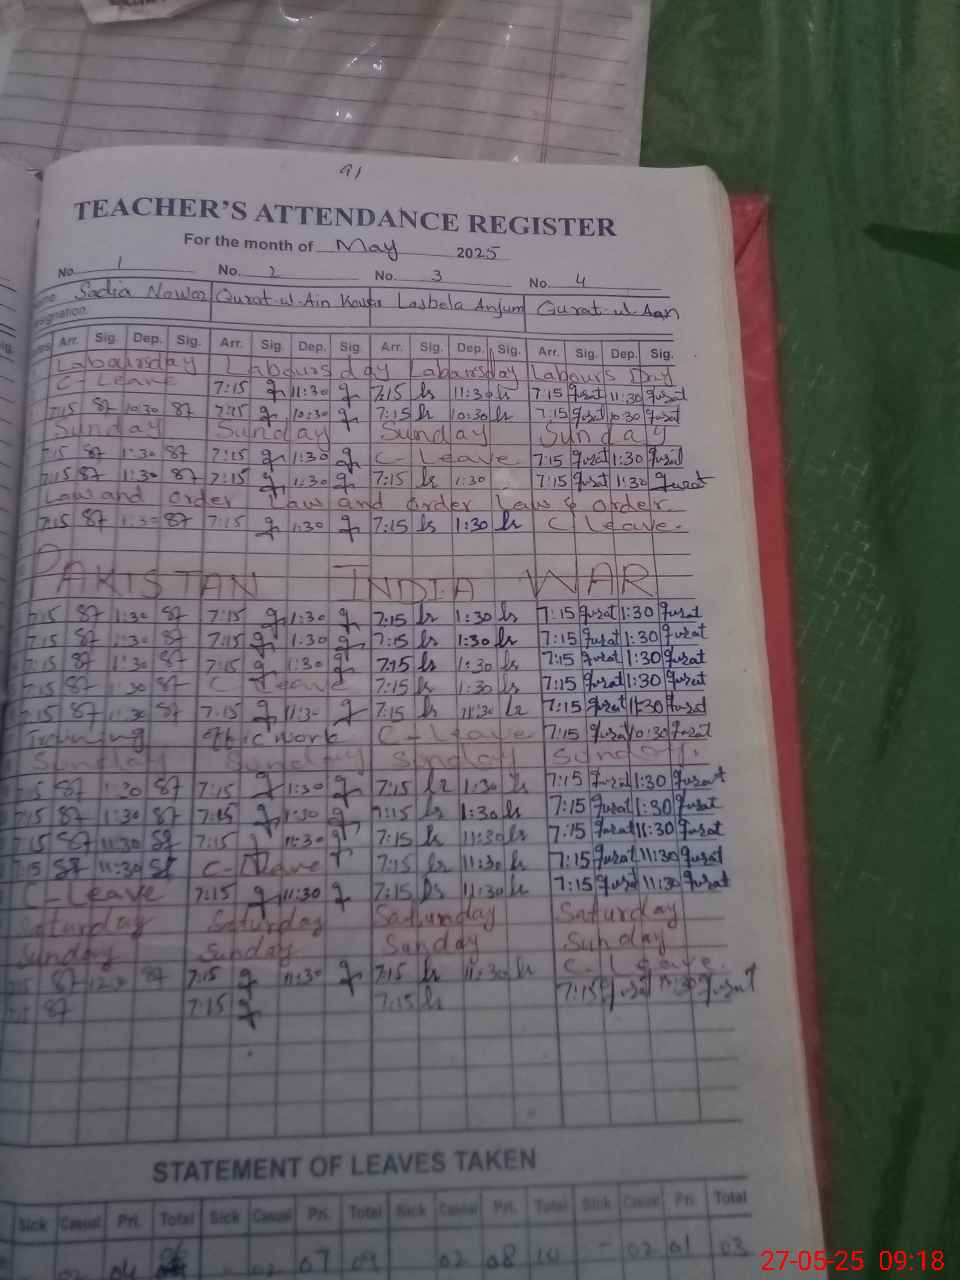 91
TEACHER'S ATTENDANCE REGISTER
For the month of May 2025
No. 1 No. 2 No. 3 No. 4
Sadia Qurat-ul-Ain Lasbela Anjum Qurat-ul-Aan
Arr. Sig. Dep. Sig. Arr. Sig. Dep. Sig. Arr. Sig. Dep. Sig. Arr. Sig. Dep. Sig.
Laboursday Laboursday Laboursday Labours Day
C-Leave 7:15 11:30 7:15 ls 11:30 ls 7:15 qurat 11:30 qurat
7:15 87 10:30 87 7:15 10:30 7:15 ls 10:30 ls 7:15 qurat 10:30 qurat
Sunday Sunday Sunday Sunday
7:15 87 1:30 87 7:15 1:30 C-Leave 7:15 qurat 1:30 qurat
7:15 87 1:30 87 7:15 1:30 7:15 ls 1:30 7:15 qurat 1:30 qurat
Law and Order Law and Order Law & Order
7:15 87 1:30 87 7:15 1:30 7:15 ls 1:30 ls C Leave.
PAKISTAN INDIA WAR
7:15 87 1:30 87 7:15 1:30 7:15 ls 1:30 ls 7:15 qurat 1:30 qurat
7:15 87 1:30 87 7:15 1:30 7:15 ls 1:30 ls 7:15 qurat 1:30 qurat
7:15 87 1:30 87 7:15 1:30 7:15 ls 1:30 ls 7:15 qurat 1:30 qurat
7:15 87 1:30 87 C Leave 7:15 ls 1:30 ls 7:15 qurat 1:30 qurat
7:15 87 11:30 87 7:15 11:3- 7:15 ls 11:30 ls 7:15 qurat 11:30 qurat
Training work C-Leave 7:15 qurat 10:30 qurat
Sunday Sunday Sunday Sunday.
7:15 87 1:30 87 7:15 1:30 7:15 ls 1:30 ls 7:15 qurat 1:30 qurat
7:15 87 1:30 87 7:15 1:30 7:15 ls 1:30 ls 7:15 qurat 1:30 qurat
7:15 87 11:30 87 7:15 11:30 7:15 ls 11:30 ls 7:15 qurat 11:30 qurat
7:15 87 11:30 87 C-Leave 7:15 ls 11:30 ls 7:15 qurat 11:30 qurat
C-Leave 7:15 11:30 7:15 ls 11:30 ls 7:15 qurat 11:30 qurat
Saturday Saturday Saturday Saturday
Sunday Sunday Sunday Sunday
87 87 7:15 11:30 7:15 ls 11:30 ls C. Leave.
87 7:15 7:15 ls 7:15 qurat 11:30 qurat
STATEMENT OF LEAVES TAKEN
Sick Casual Pri. Total Sick Casual Pri. Total Sick Casual Pri. Total Sick Casual Pri. Total
04 06 02 07 09 02 08 10 - 02 01 03
27-05-25 09:18